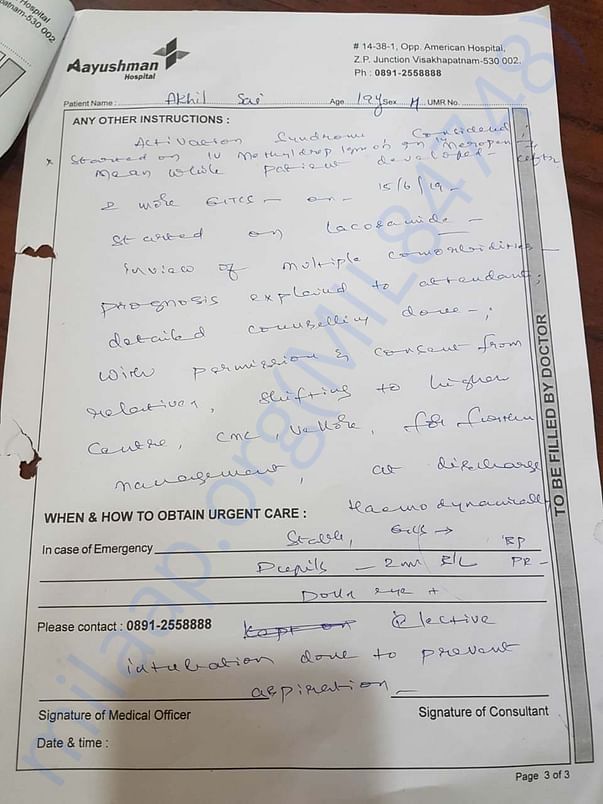 Hospital
patnam-530 002
Aayushman
Hospital
# 14-38-1, Opp. American Hospital,
Z.P. Junction Visakhapatnam-530 002.
Ph : 0891-2558888
Patient Name : Akhil Sai Age 19y Sex M UMR No.
ANY OTHER INSTRUCTIONS :
Activation Syndrome considered ;
* Started on IV Methylpred 1gm od
Mean while patient developed -
2 more GTCS - on - 15/6/19 -
started on Lacosamide -
inview of multiple comorbidities -
prognosis explained to attendant ;
detailed counselling done - ;
with permission & consent from
relatives, shifting to higher
centre, CMC, Vellore, for further
management, at discharge
Haemodynamically
WHEN & HOW TO OBTAIN URGENT CARE :
In case of Emergency Stable, GCS → BP
Pupils - 2mm B/L PR -
Doll's eye +
Please contact : 0891-2558888 Elective
intubation done to prevent
aspiration -
Signature of Medical Officer
Signature of Consultant
Date & time :
Page 3 of 3
TO BE FILLED BY DOCTOR
milaap.org(MIL84748)